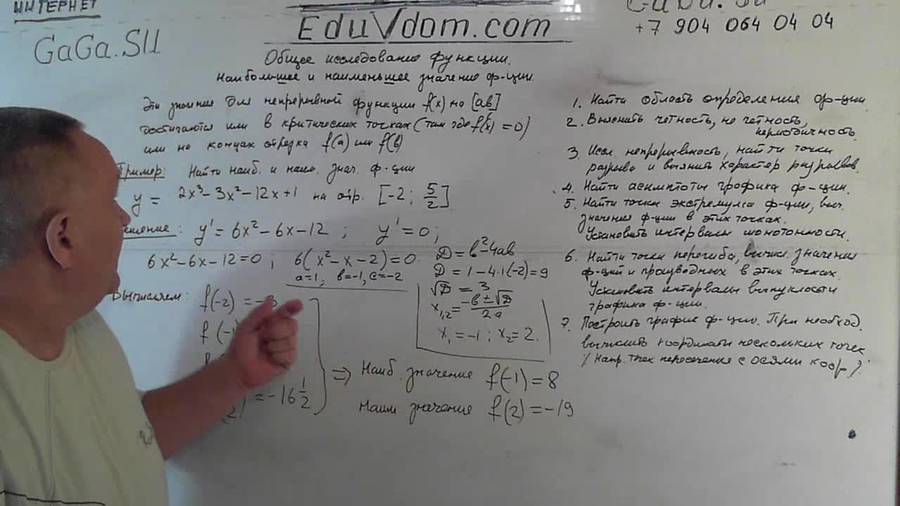 ИНТЕРНЕТ
GaGa.SU
EduVdom.com
GaGa.SU
+7 904 064 04 04
Общее исследование функции.
Наибольшее и наименьшее значение ф-ции.
Эти значения для непрерывной функции f(x) на [ab]
достигаются или в критических точках (там где f(x) = 0)
или на концах отрезка f(a) или f(b)
Пример: Найти наиб. и наим. знач. ф-ции
y = 2x³ - 3x² - 12x + 1 на отр. [-2; 5/2]
Решение: y' = 6x² - 6x - 12 ; y' = 0 ;
6x² - 6x - 12 = 0 ; 6(x² - x - 2) = 0
a=1, b=-1, c=-2
Д = b² - 4ab
Д = 1 - 4·1·(-2) = 9
√Д = 3
x₁,₂ = -b ± √Д / 2a
x₁ = -1 ; x₂ = 2.
Вычисляем: f(-2) = -3
f(-1
2) = -16 1/2
=> Наиб. значение f(-1) = 8
Наим значение f(2) = -19
1. Найти область определения ф-ции
2. Выяснить четность, не четность,
периодичность
3. Иссл непрерывность, найти точки
разрыва и выяснить характер разрывов.
4. Найти асимптоты графика ф-ции.
5. Найти точки экстремума ф-ции, выч.
значения ф-ции в этих точках.
Установить интервалы монотонности.
6. Найти точки перегиба, вычисл. значения
ф-ций и производных в этих точках.
Установить интервалы выпуклости
графика ф-ции.
7. Построить график ф-ции. При необход.
вычислить координаты нескольких точек
(Напр. точек пересечения с осями коор.)